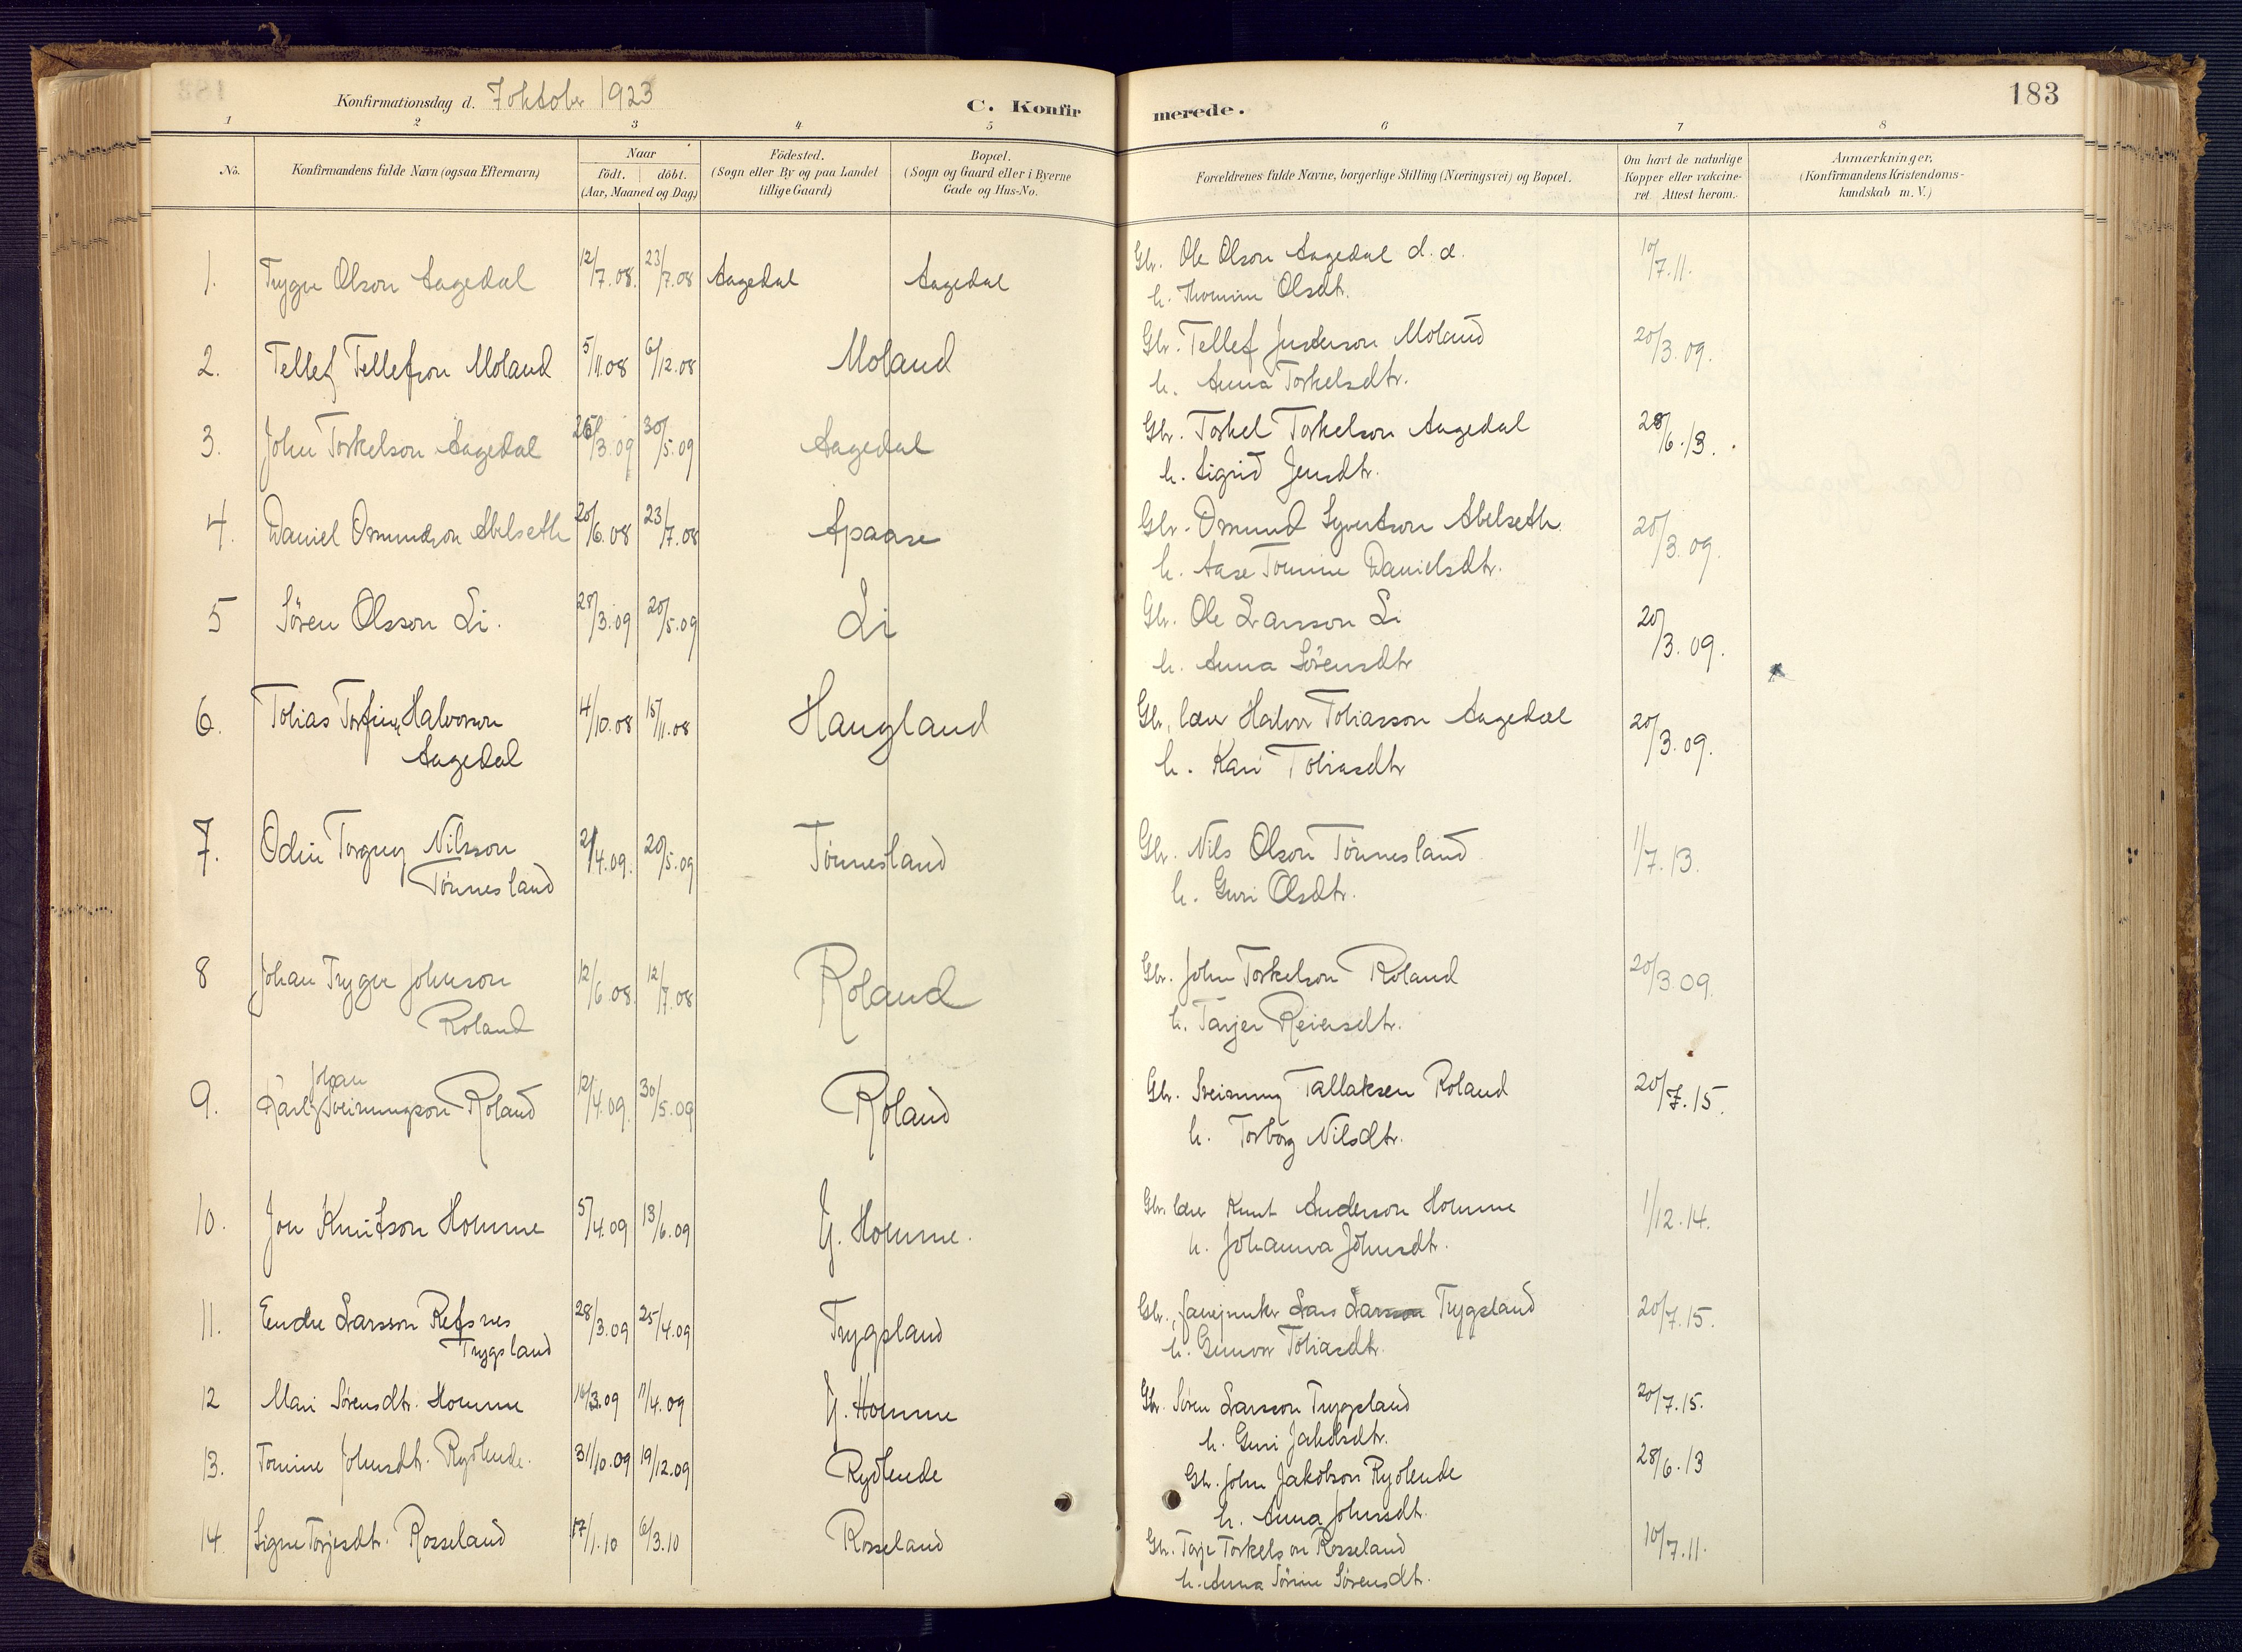 183
Konfirmationsdag d. 7 oktober 1923
C. Konfirmerede.
1 2 3 4 5 6 7 8
No.
Konfirmandens fulde Navn (ogsaa Efternavn)
Naar
födt. döbt.
(Aar, Maaned og Dag)
Födested.
(Sogn eller By og paa Landet
tillige Gaard)
Bopæl.
(Sogn og Gaard eller i Byerne
Gade og Hus-No.
Forældrenes fulde Navne, borgerlige Stilling (Næringsvei) og Bopæl.
Om havt de naturlige
Kopper eller vakcine-
ret. Attest herom.
Anmærkninger.
(Konfirmandens Kristendoms-
kundskab m. V.)
1. Trygve Olson Aagedal 12/7.08. 23/7.08 Aagedal Aagedal Gbr. Ole Olson Aagedal d. æ. 10/7.11.
h. Thomine Olsdt.
2. Tellef Tellefson Moland 5/11.08 6/12.08 Moland Gbr. Tellef Moland 20/3.09.
h. Anna Torkelsdtr.
3. John Torkelson Aagedal /3.09 30/5.09 Aagedal Gbr. Torkel Torkelson Aagedal 28/6.13.
h. Sigrid Jensdtr.
4. Daniel Osmundson Abelseth 20/6.08 23/7.08 Apaase Gbr. Osmund Syvertson Abelseth. 20/3.09.
h. Aase Tomine Danielsdtr.
5 Sören Olsson Li. 28/3.09 20/5.09 Li Gbr. Ole Larsson Li 20/3.09.
h. Anna Sörensdtr
6. Tobias Torfinn Halvorson 4/10.08 15/11.08 Haugland Gbr, lærer Halvor Tobiasson Aagedal 20/3.09.
Aagedal h. Kari Tobiasdtr
7. Odin Torgny Nilsson 21/4.09. 20/5.09 Tönnesland Gbr. Nils Olson Tönnesland 1/7.13.
Tönnesland h. Guri Olsdtr.
8 Johan Trygve Johnson 12/6.08. 12/7.08 Roland Gbr. John Torkelson Roland 20/3.09.
Roland h. Tarjer Reiersdtr.
Johan
9. Karl Sveinungson Roland 12/4.09. 30/5.09 Roland Gbr. Sveinung Tallaksen Roland 20/7.15.
h. Torborg Nilsdtr.
10. Jon Knutson Homme 5/4.09 13/6.09 Y. Homme. Gbr. lærer Knut Anderson Homme 1/12.14.
h. Johanna Johnsdtr.
11. Endre Larsson Refsnes 28/3.09 25/4.09 Trygsland Gbr., fanejunker Lars Larsson Trygsland 20/7.15.
Trygsland h. Gunvor Tobiasdtr.
12 Mari Sörensdtr. Homme 16/3.09 11/4.09 Y. Homme Gbr. Sören Larsson Trygsland 20/7.15.
h. Guri Jakobsdtr.
13. Tomine Johnsdtr. Rydlende. 31/10.09 19/12.09 Rydlende Gbr. John Jakobson Rydlende 28/6.13
h. Anna Johnsdtr.
14. Signe Torjesdtr. Rosseland 17/1.10 6/3.10 Rosseland Gbr. Torje Torkelson Rosseland 10/7.11.
h. Anna Sörine Sörensdtr.